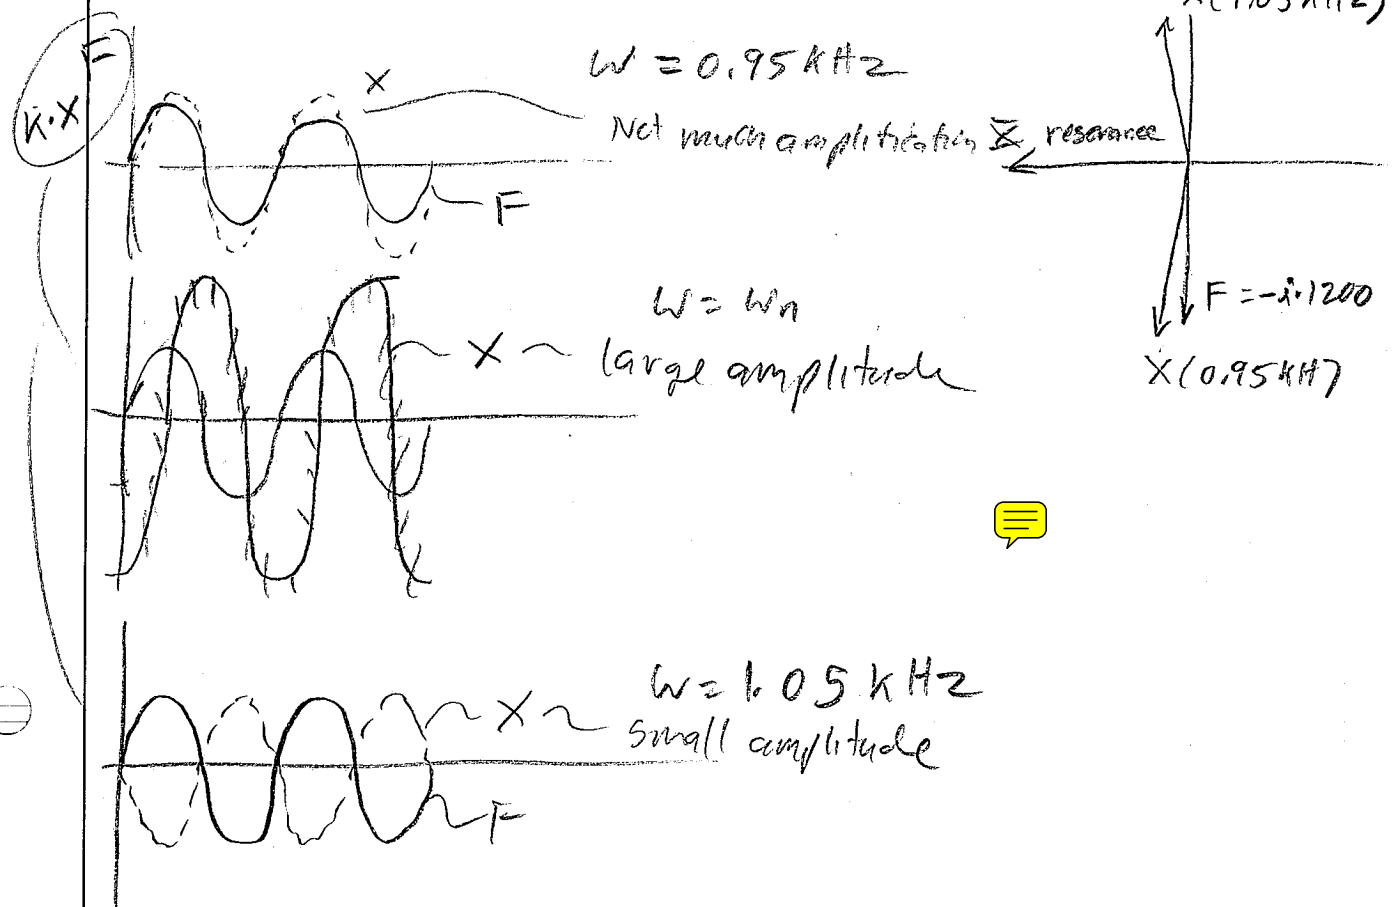 X(1.05KHz)
F
K·X
X
W = 0.95KHz
Not much amplification
X, resonance
F
F = -i·1200
X(0.95KH)
W = Wn
X
large amplitude
W = 1.05KHz
X
small amplitude
F